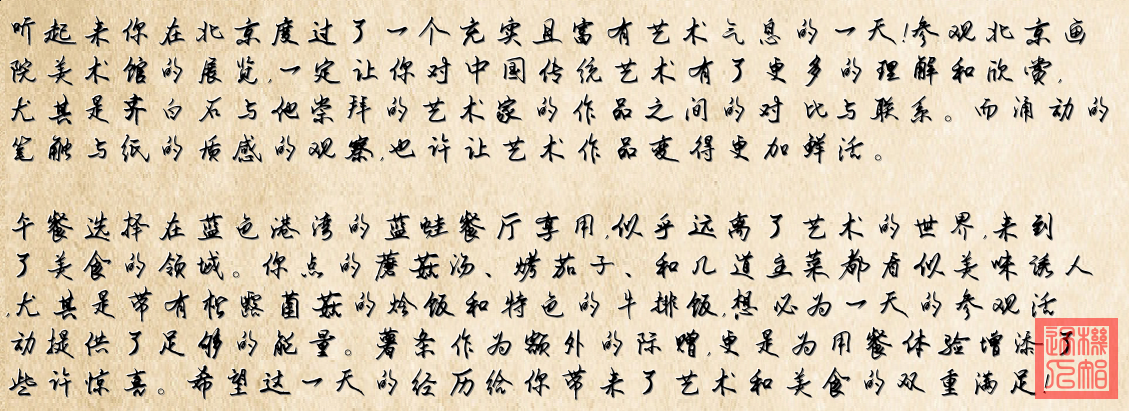 听起来你在北京度过了一个充实且富有艺术气息的一天!参观北京画
院美术馆的展览,一定让你对中国传统艺术有了更多的理解和欣赏,
尤其是齐白石与他崇拜的艺术家的作品之间的对比与联系。而涌动的
笔触与纸的质感的观察,也许让艺术作品变得更加鲜活。
午餐选择在蓝色港湾的蓝蛙餐厅享用,似乎远离了艺术的世界,来到
了美食的领域。你点的蘑菇汤、烤茄子、和几道主菜都看似美味诱人
,尤其是带有松露菌菇的烩饭和特色的牛排饭,想必为一天的参观活
动提供了足够的能量。薯条作为额外的际赠,更是为用餐体验增添了
些许惊喜。希望这一天的经历给你带来了艺术和美食的双重满足!